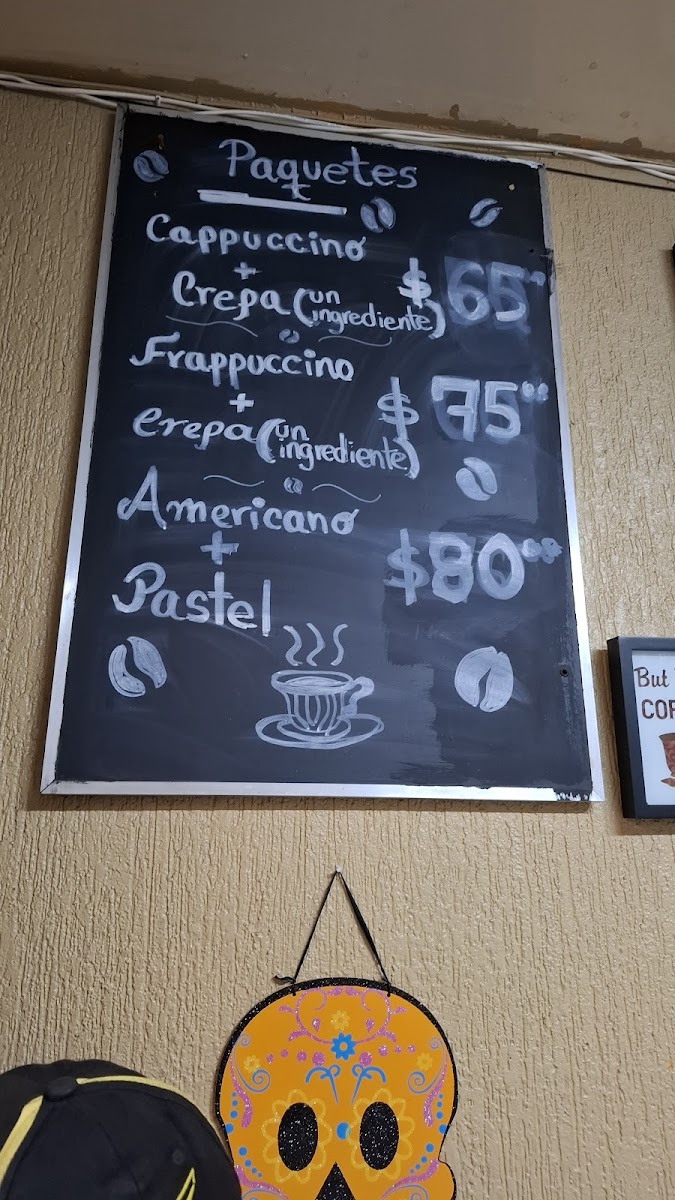 Paquetes
Cappuccino
+
Crepa (un ingrediente) $65°°
Frappuccino
+
crepa (un ingrediente) $75°°
Americano
+
Pastel $80°°
But